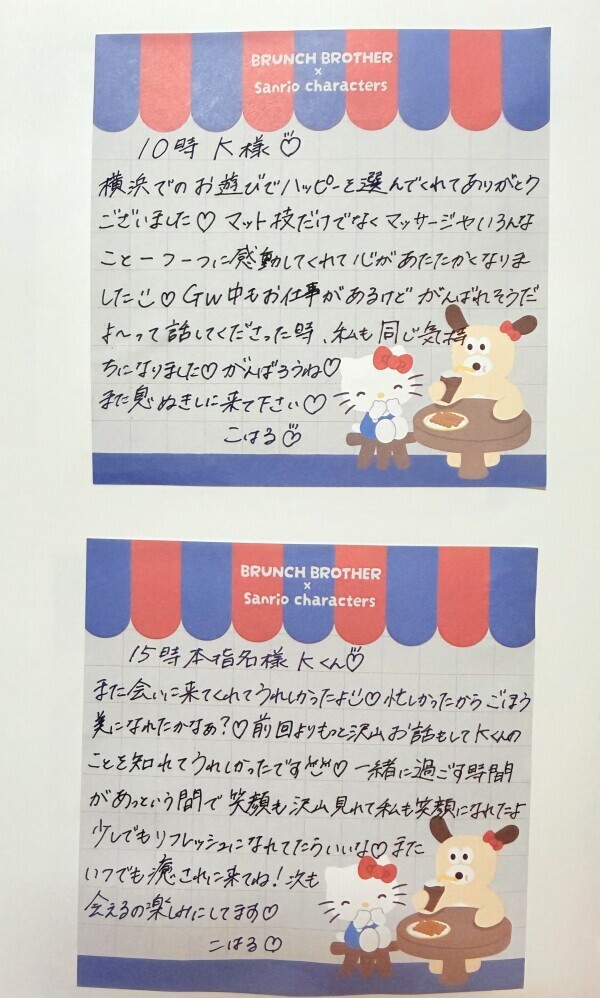 BRUNCH BROTHER
×
Sanrio characters
10時 K様♡
横浜でのお遊びでハッピーを選んでくれてありがとう
ございました♡ マット技だけでなくマッサージやいろんな
こと一つ一つに感動してくれて心があたたかくなりま
した♡ GW中もお仕事があるけど がんばれそうだ
よ〜って話してくださった時、私も同じ気持
ちになりました♡がんばろうね♡
また息ぬきしに来て下さい♡
こはる♡
BRUNCH BROTHER
×
Sanrio characters
15時本指名様 Kくん♡
また会いに来てくれてうれしかったよ♡ 忙しかったから ごほう
美になれたかなぁ?♡ 前回よりもっと沢山お話もしてKくんの
ことを知れてうれしかったです♡ 一緒に過ごす時間
があっという間で笑顔も沢山見れて私も笑顔になれたよ
少しでもリフレッシュになれてたらいいな♡また
いつでも癒されに来てね!次も
会えるの楽しみにしてます♡
こはる♡